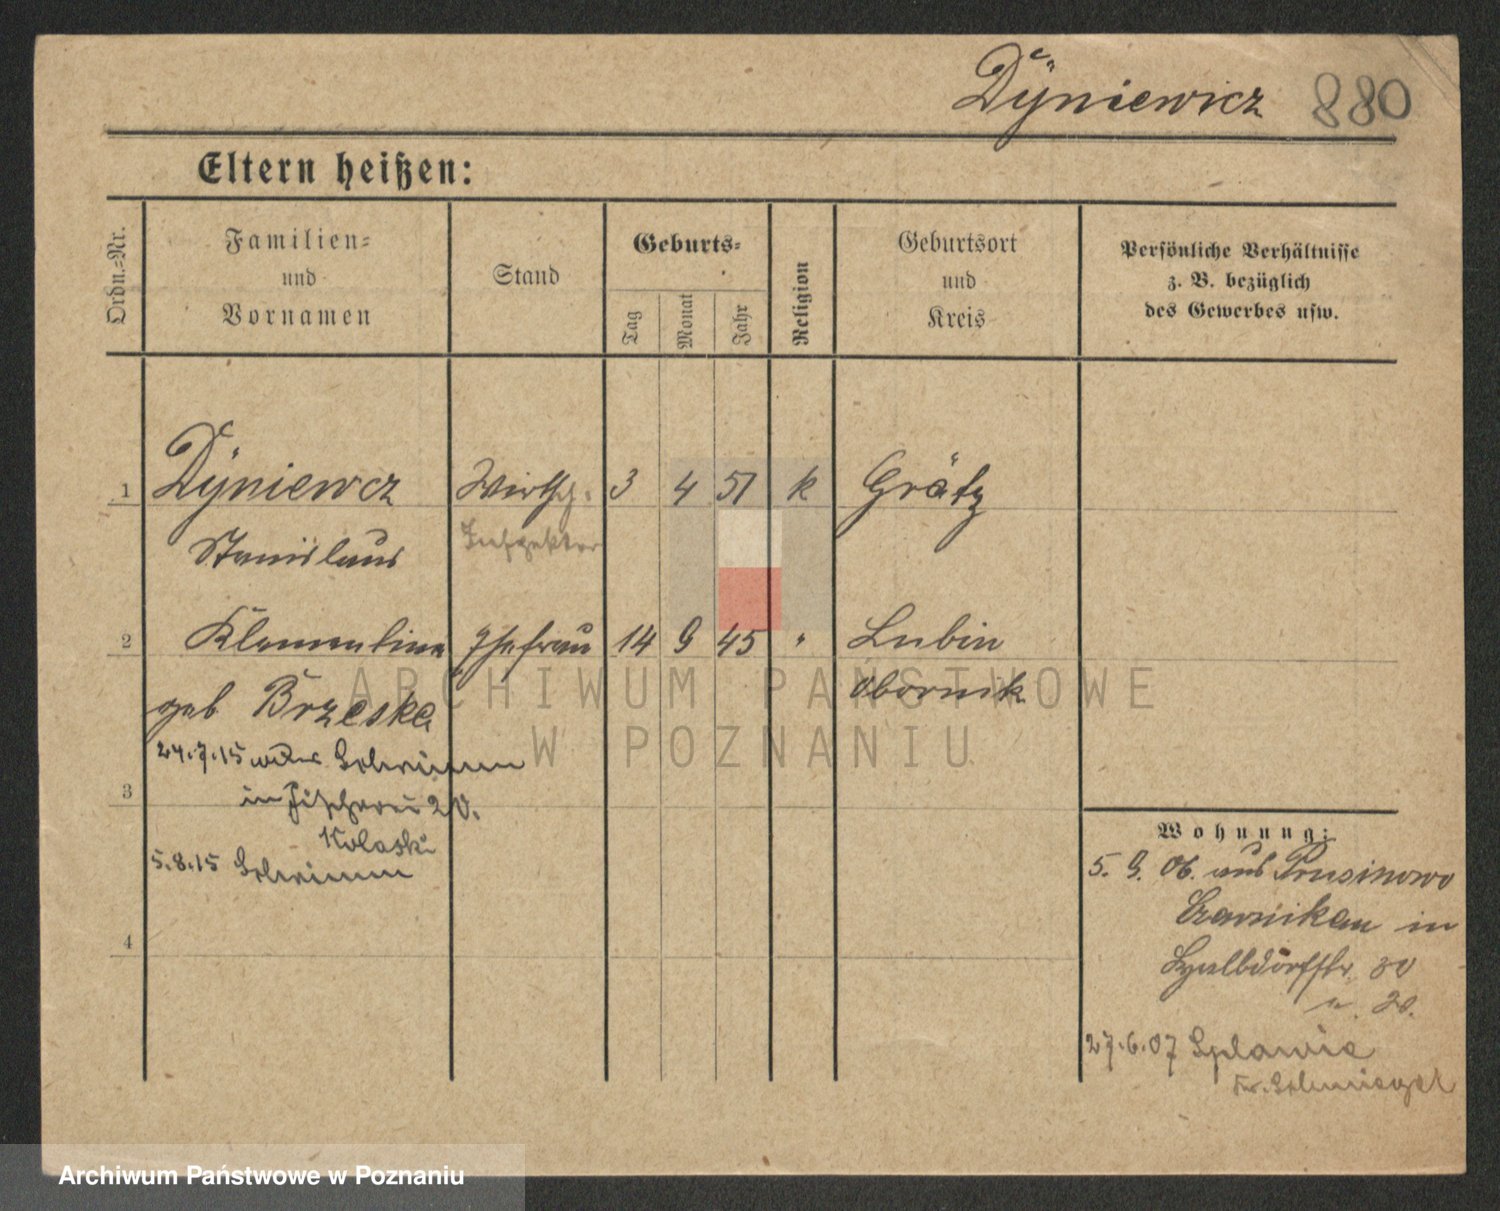 Dÿniewicz 880
Eltern heißen:
Ordn.-Nr.
Familien-
und
Vornamen
Stand
Geburts-
Tag
Monat
Jahr
Religion
Geburtsort
und
Kreis
Persönliche Verhältnisse
z. B. bezüglich
des Gewerbes usw.
1 Dÿniewcz Wirthsch. 3 4 51 k Grätz
Stanislaus Inspektor
2 Klementine Ehefrau 14 9 45 " Lubin
geb Brzeska Obornik
24.7.15 Schrimm
3 in Fischerei 20.
Kolaski
5.8.15 Schrimm
4
Wohnung:
5. 9. 06. aus Prusinowo
Czarnikau in
30
u. 20.
27.6.07
Kr. Schmiegel
ARCHIWUM PAŃSTWOWE
W POZNANIU
Archiwum Państwowe w Poznaniu